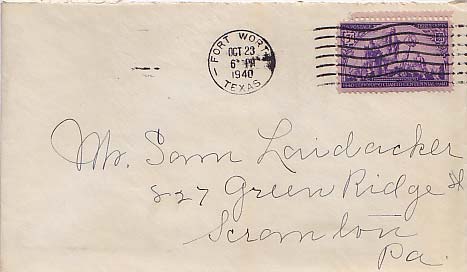 FORT WORTH
OCT 23
6 PM
1940
TEXAS
Mr. Sam Laidacker
827 Green Ridge St
Scranton
Pa.